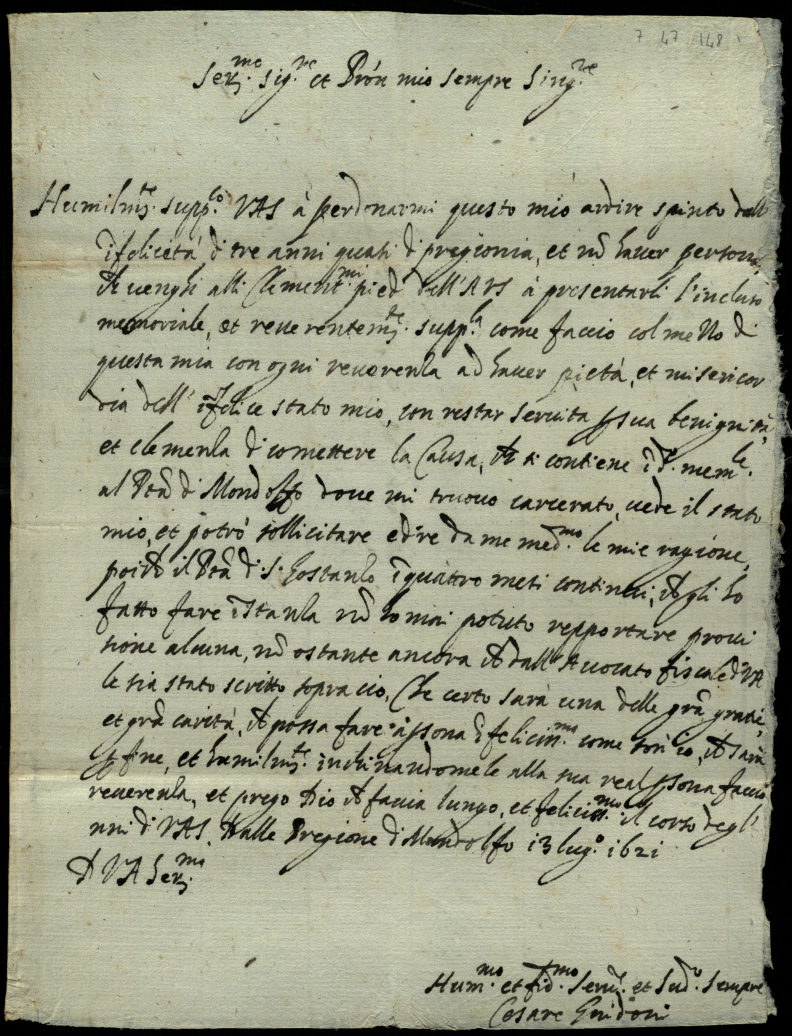 7 47 148
Ser.mo Sig.re et Pròn mio sempre Sing.re
Humilm.te supp.co VAS à perdonarmi questo mio ardire spinto dalla
ĩfelicità di tre anni quasi di pregionia, et nõ haver persona
che venghi alli Clement.mi piedi dell'AVS à presentarli l'incluso
memoriale, et reverentem.te supp.la come faccio col mezzo di
questa mia con ogni reverenza ad haver pietà, et misericor
dia dell'ĩfelice stato mio, con restar servita p sua benignità,
et clemenza di comettere la Causa, che si contiene ĩ d.o mem.le
al Ptà di Mondolfo dove mi truovo carcerato, vede il stato
mio, et potrò sollicitare et dire da me med.mo le mie ragione,
poiche il Ptà di S. Gostanzo ĩ quattro mesi continui, che gli ho
fatto fare ĩstanza nõ ho mai potuto repportare provi
sione alcuna, nõ ostante ancora che dall'Avocato fiscale di VA
le sia stato scritto sopra ciò, Che certo sarà una delle grã gratie,
et grã carità, che possa fare à psona ĩfeliciss.ma come son io, che sarà
p fine, et humilm.te inchinandomele alla sua real psona faccio
reverenza, et prego Dio che faccia lungo, et feliciss.mo il corso degl'
nni di VAS. Dalle Pregione di Mondolfo 13 lug.o 1621
D VA Ser.ma
Hum.mo et fid.mo Serv.re et Sud.o sempre
Cesare Guidoni